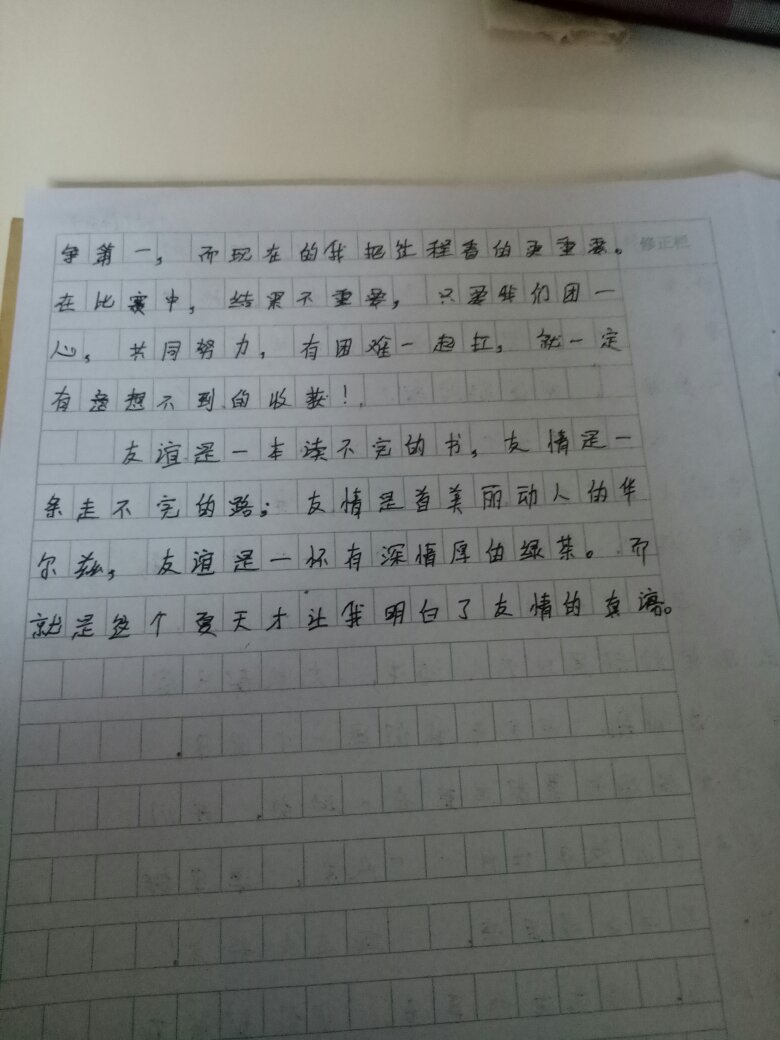 争第一，而现在的我把过程看的更重要。
修正栏
在比赛中，结果不重要，只要我们团一
心，共同努力，有困难一起扛，就一定
有意想不到的收获！
友谊是一本读不完的书，友情是一
条走不完的路；友情是首美丽动人的华
尔兹，友谊是一杯有深情厚的绿茶。而
就是这个夏天才让我明白了友情的真谛。